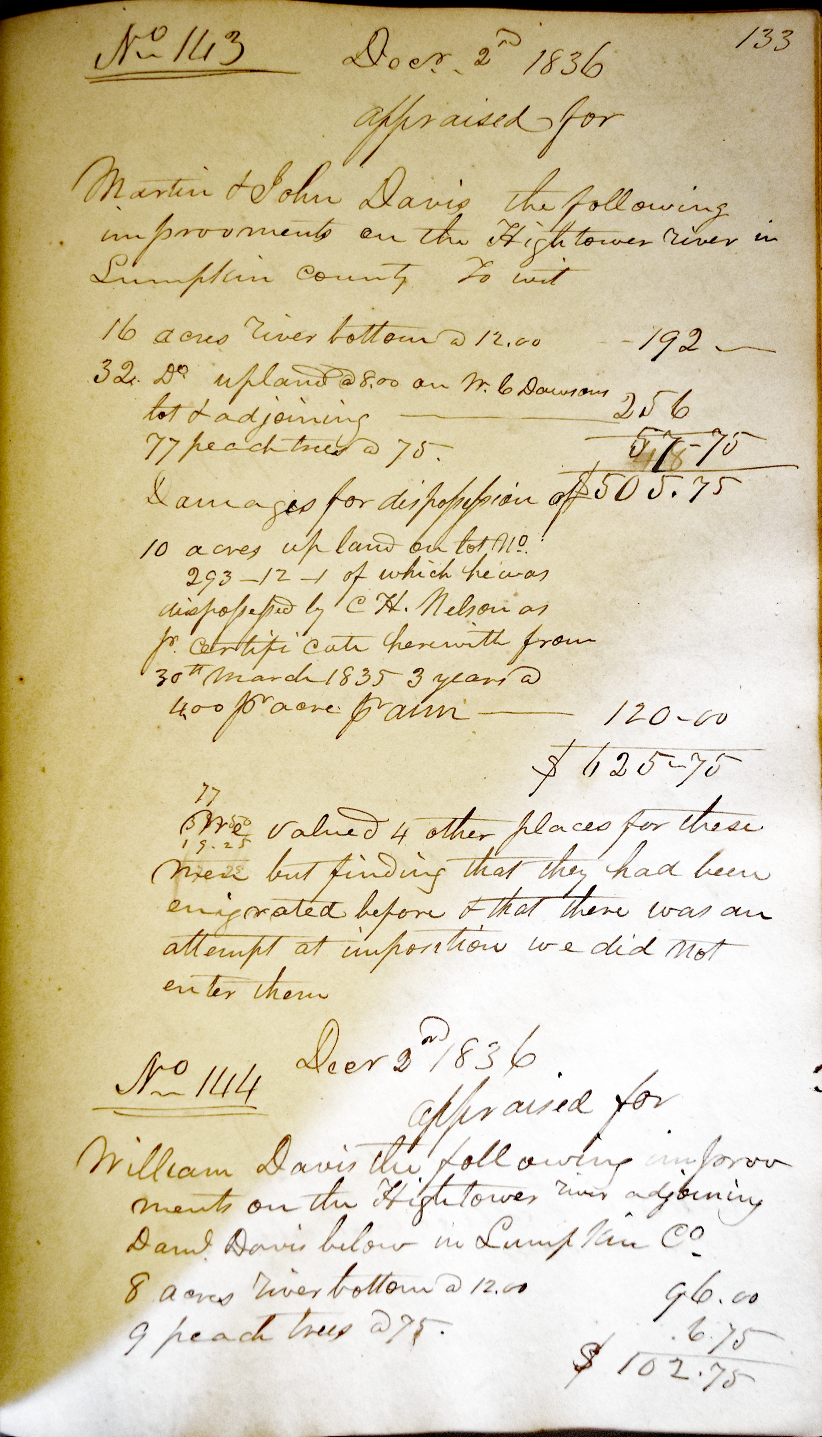 133
No 143 Decr. 2nd 1836
appraised for
Martin & John Davis the following
improovments on the Hightower river in
Lumpkin county To wit
16 acres river bottom @ 12.00 - 192 —
32. Do upland @ 8.00 on W. C Dawsons
lot & adjoining — 256
77 peach trees @ 75. 57-75
Damages for dispossession of $505.75
10 acres up land on lot No.
293-12-1 of which he was
dispossessed by C H. Nelson as
pr. certificate herewith from
30th March 1835 3 years @
4,00 pr acre pr ann — 120-00
$ 625-75
77
19.25
We valued 4 other places for these
men but finding that they had been
enigrated before & that there was an
attempt at imposition we did not
enter them
No 144 Decr 2nd 1836
appraised for
William Davis the following improov
ments on the Hightower river adjoining
Danl. Davis below in Lumpkin Co.
8 acres river bottom @ 12.00 96.00
9 peach trees @ 75. .6.75
$ 102.75